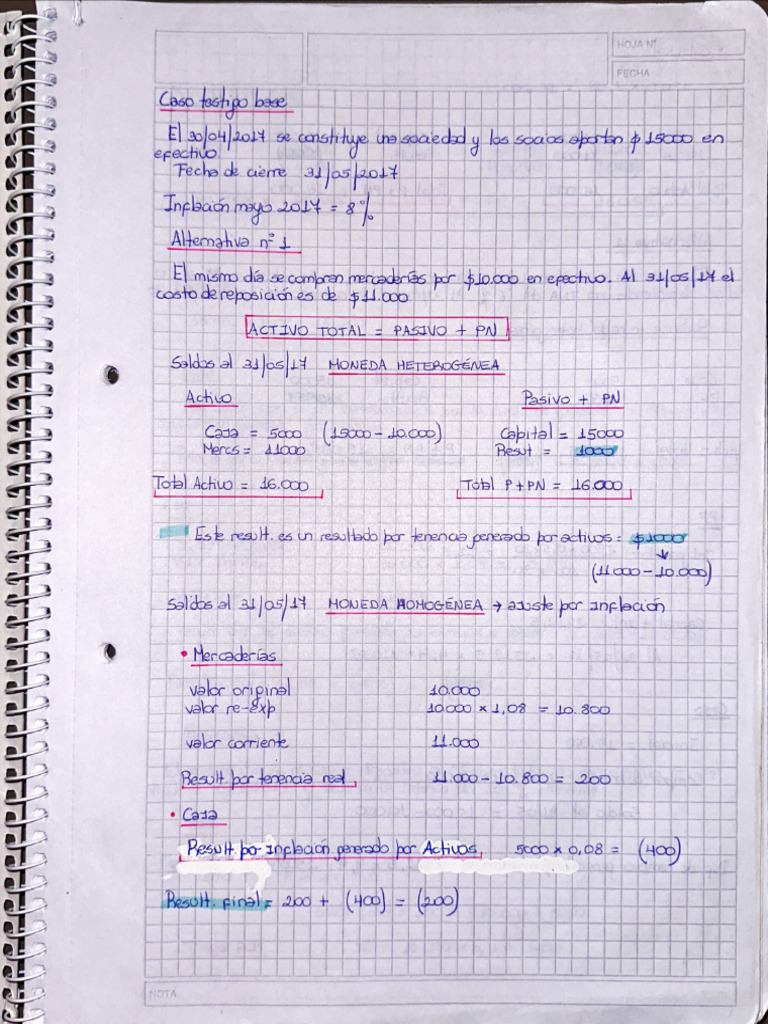 HOJA N°
FECHA
Caso testigo base
El 30/04/2017 se constituye una sociedad y los socios aportan $ 15000 en
efectivo.
Fecha de cierre 31/05/2017
Inflación mayo 2017 = 8%
Alternativa n° 1
El mismo día se compran mercaderías por $10.000 en efectivo. Al 31/05/17 el
costo de reposición es de $11.000
ACTIVO TOTAL = PASIVO + PN
Saldos al 31/05/17 MONEDA HETEROGÉNEA
Activo Pasivo + PN
Caja = 5000 (15000 - 10.000) Capital = 15000
Mercs = 11000 Result = 1000
Total Activo = 16.000 Total P+PN = 16.000
Este result. es un resultado por tenencia generado por activos: $1000
(11000 - 10.000)
Saldos al 31/05/17 MONEDA HOMOGÉNEA → ajuste por inflación
• Mercaderías
valor original 10.000
valor re-exp 10.000 x 1,08 = 10.800
valor corriente 11.000
Result. por tenencia real 11.000 - 10.800 = 200
• Caja
Result. por inflación generado por Activos. 5000 x 0,08 = (400)
Result. final = 200 + (400) = (200)
NOTA